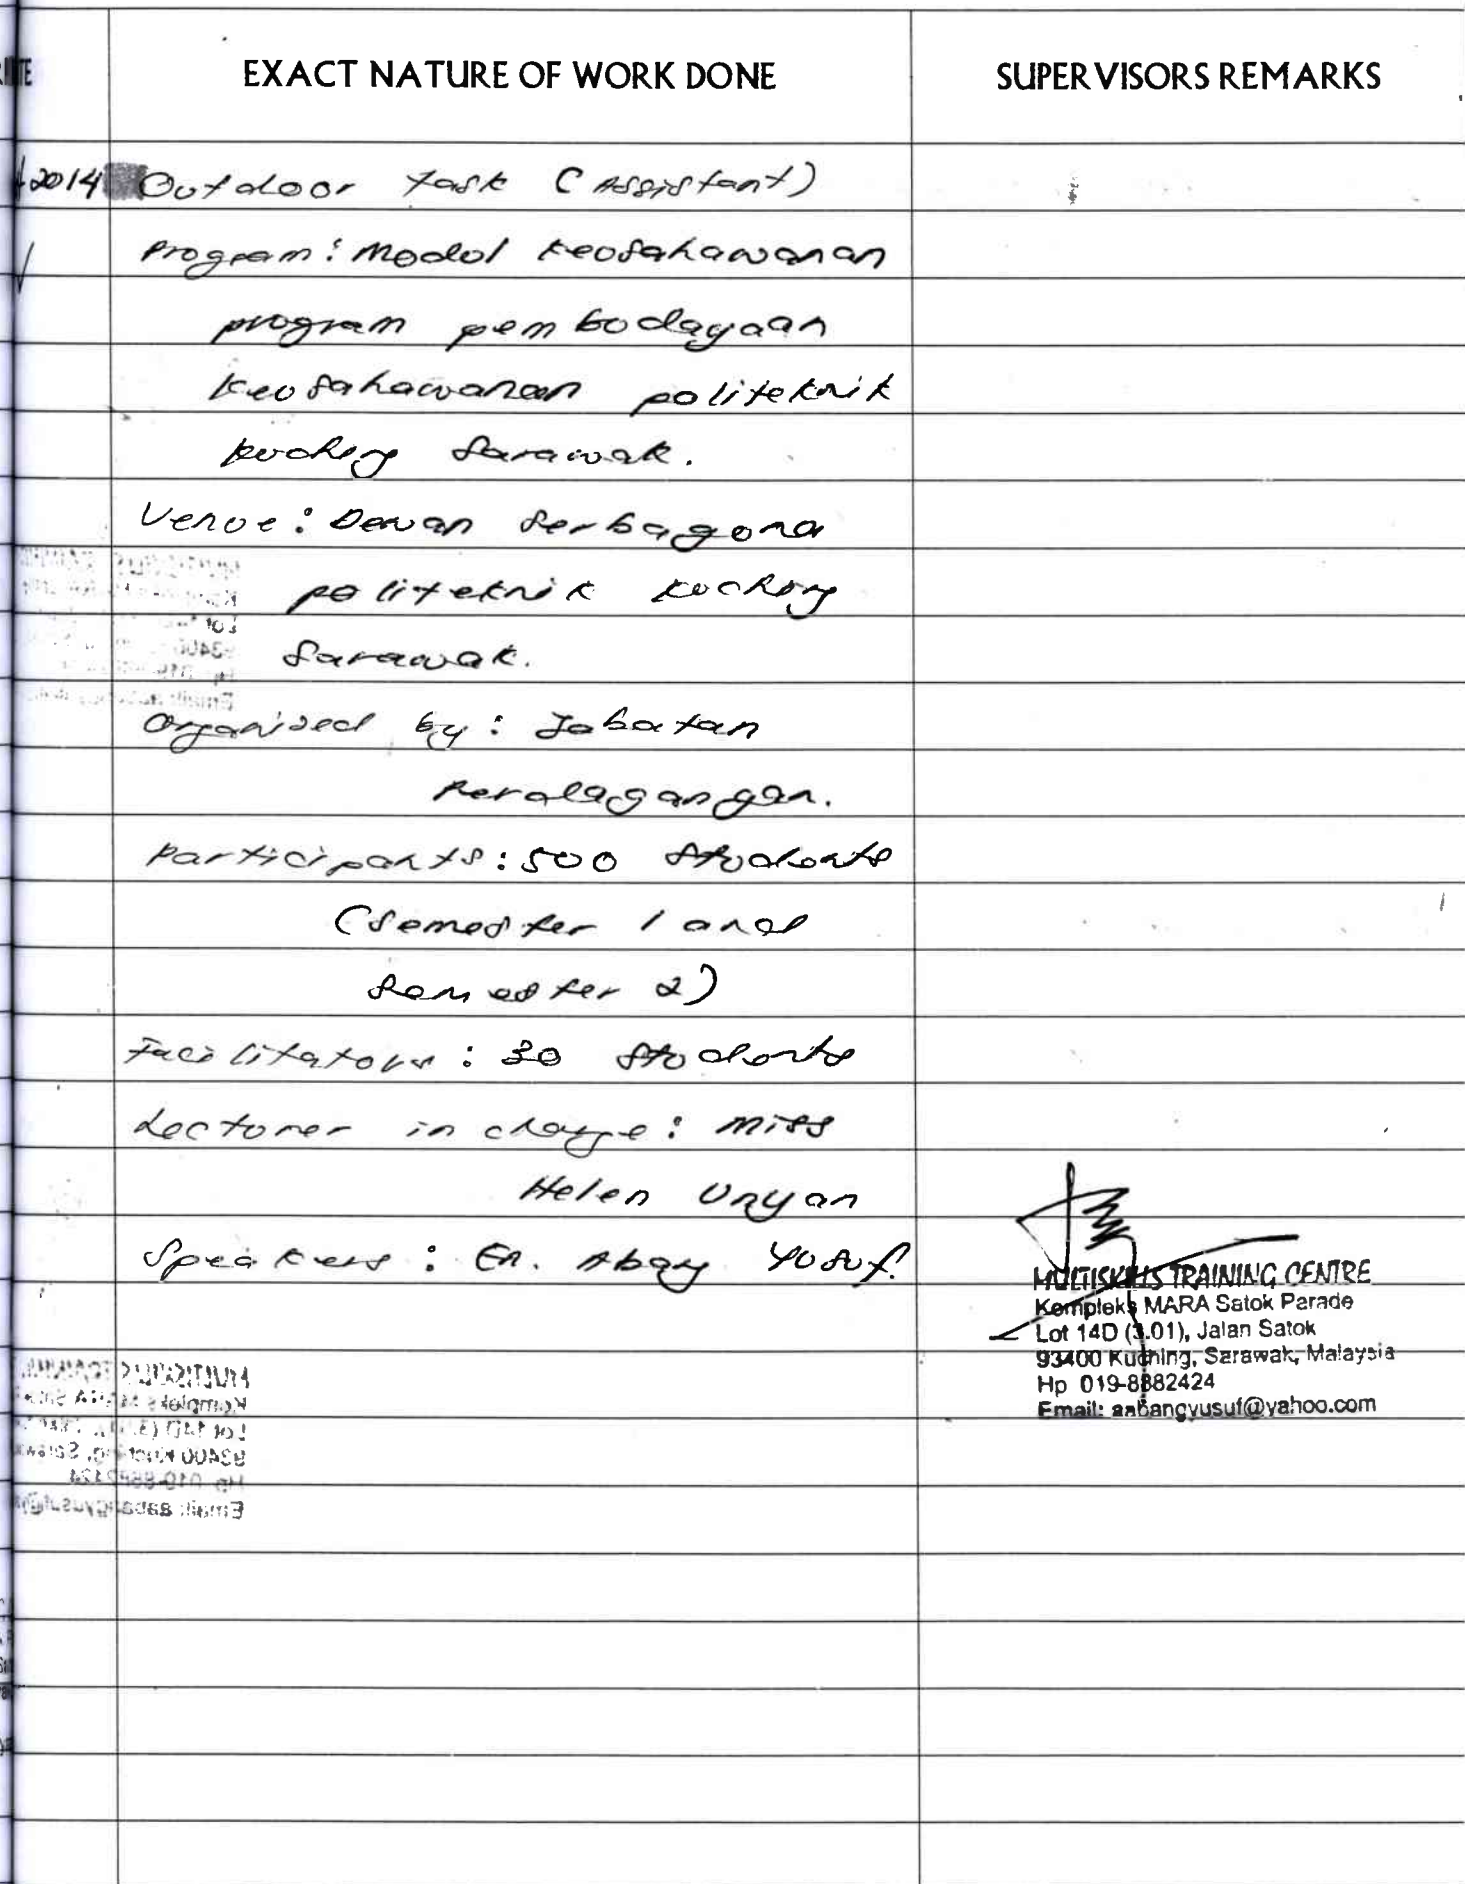 EXACT NATURE OF WORK DONE
SUPERVISORS REMARKS
2014 Outdoor task (Assistant)
Program: Modul keusahawanan
program pembudayaan
keusahawanan politeknik
kuching Sarawak.
Venue: Dewan Serbaguna
politeknik kuching
Sarawak.
Organised by: Jabatan
Perdagangan.
Participants: 500 Students
(Semester 1 and
Semester 2)
Facilitators: 30 Students
Lecturer in charge: Miss
Helen Unyan
Speakers: En. Abg Yusuf.
MULTISKILLS TRAINING CENTRE
Kompleks MARA Satok Parade
Lot 14D (3.01), Jalan Satok
93400 Kuching, Sarawak, Malaysia
Hp 019-8882424
Email: aabangyusuf@yahoo.com